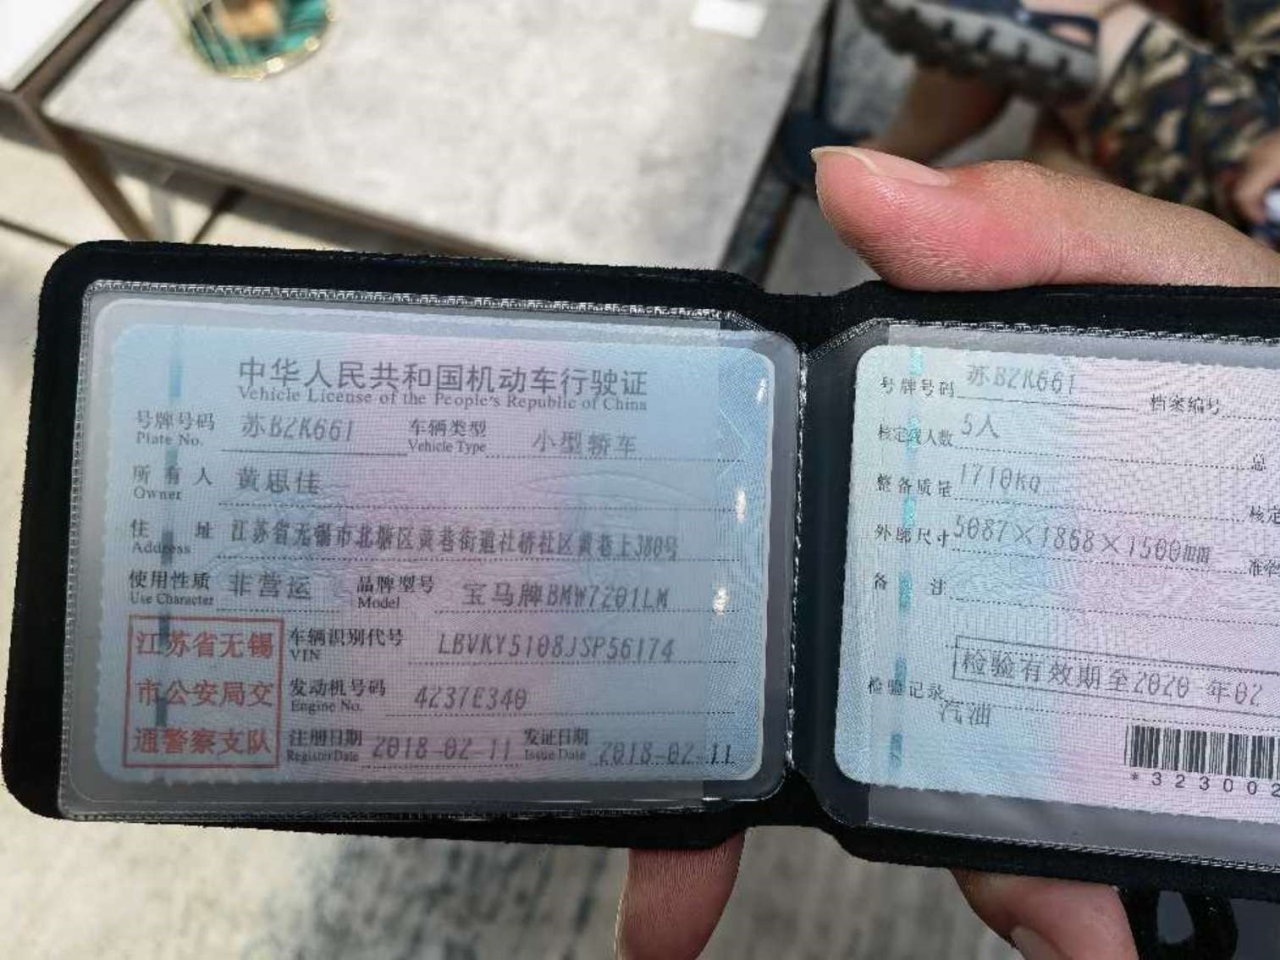 中华人民共和国机动车行驶证
Vehicle License of the People's Republic of China
号牌号码 苏BZK661 车辆类型 小型轿车
Plate No. Vehicle Type
所有人 黄思佳
Owner
住址 江苏省无锡市北塘区黄巷街道社桥社区黄巷上380号
Address
使用性质 非营运 品牌型号 宝马牌BMW7201LM
Use Character Model
江苏省无锡
市公安局交
通警察支队
车辆识别代号 LBVKY5108JSP56174
VIN
发动机号码 4237E340
Engine No.
注册日期 2018-02-11 发证日期 2018-02-11
Register Date Issue Date
号牌号码 苏BZK661 档案编号
核定载人数 5人 总
整备质量 1710kg 核定
外廓尺寸 5087×1868×1500mm 准牵
备注
检验有效期至2020年02
检验记录
汽油
*323002